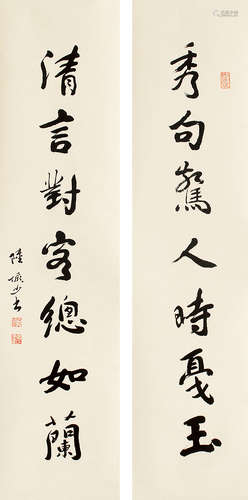 秀句驚人時戛玉
清言對客總如蘭
陸儼少書